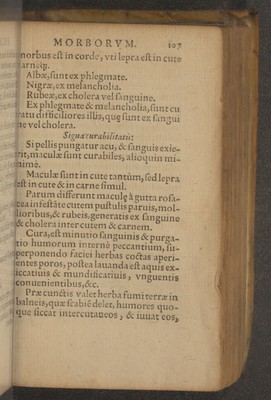 MORBORVM. 107
morbus est in corde, vti lepra est in cute
& carneiꝙ.
Albæ, sunt ex phlegmate.
Nigræ, ex melancholia.
Rubeæ, ex cholera vel sanguine.
Ex phlegmate & melancholia, sunt cu
ratu difficiliores illis, quę sunt ex sangui
ne vel cholera.
Signa curabilitatis:
Si pellis pungatur acu, & sanguis exie-
rit, maculæ sunt curabiles, alioquin mi-
nimè.
Maculæ sunt in cute tantùm, sed lepra
est in cute & in carne simul.
Parum differunt maculę à gutta rosa-
cea infestâte cutem pustulis paruis, mol-
lioribus, & rubeis, generatis ex sanguine
& cholera inter cutem & carnem.
Cura, est minutio sanguinis & purga-
tio humorum internè peccantium, su-
perponendo faciei herbas coctas aperi-
entes poros, postea lauanda est aquis ex-
iccatiuis & mundificatiuis, vnguentis
conuenientibus, &c.
Præ cunctis valet herba fumi terræ in
balneis, quæ scabiê delet, humores quo-
que siccat intercutaneos, & iuuat eos,